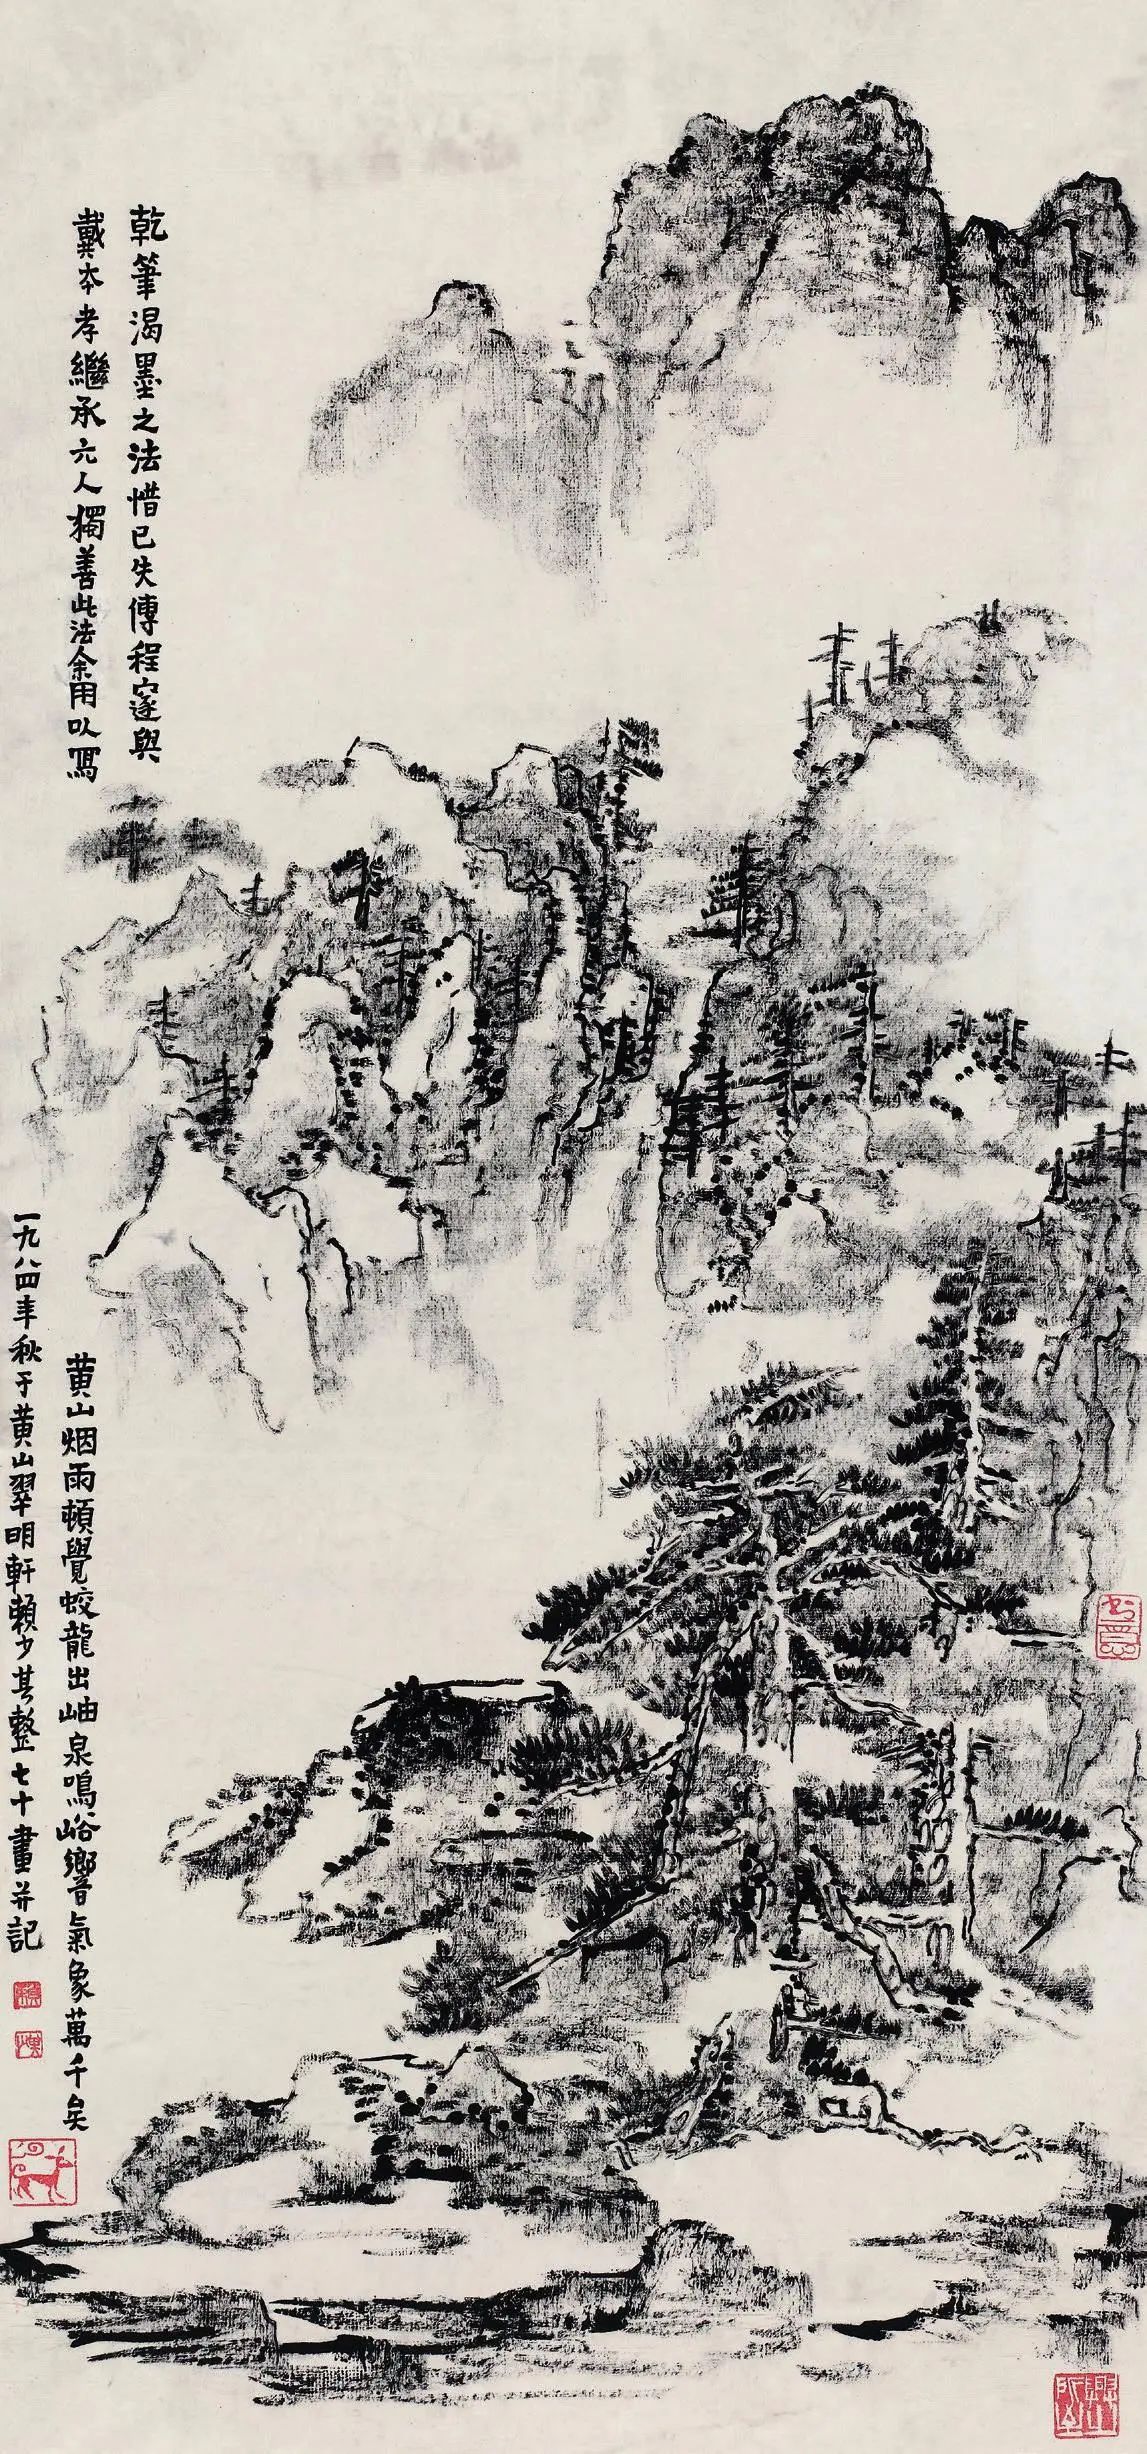 乾筆渴墨之法惜已失傳程邃與
戴本孝繼承元人獨善此法余用以寫
黄山烟雨頓覺蛟龍出岫泉鳴峪響氣象萬千矣
一九八四年秋于黄山翠明軒賴少其整七十畫并記